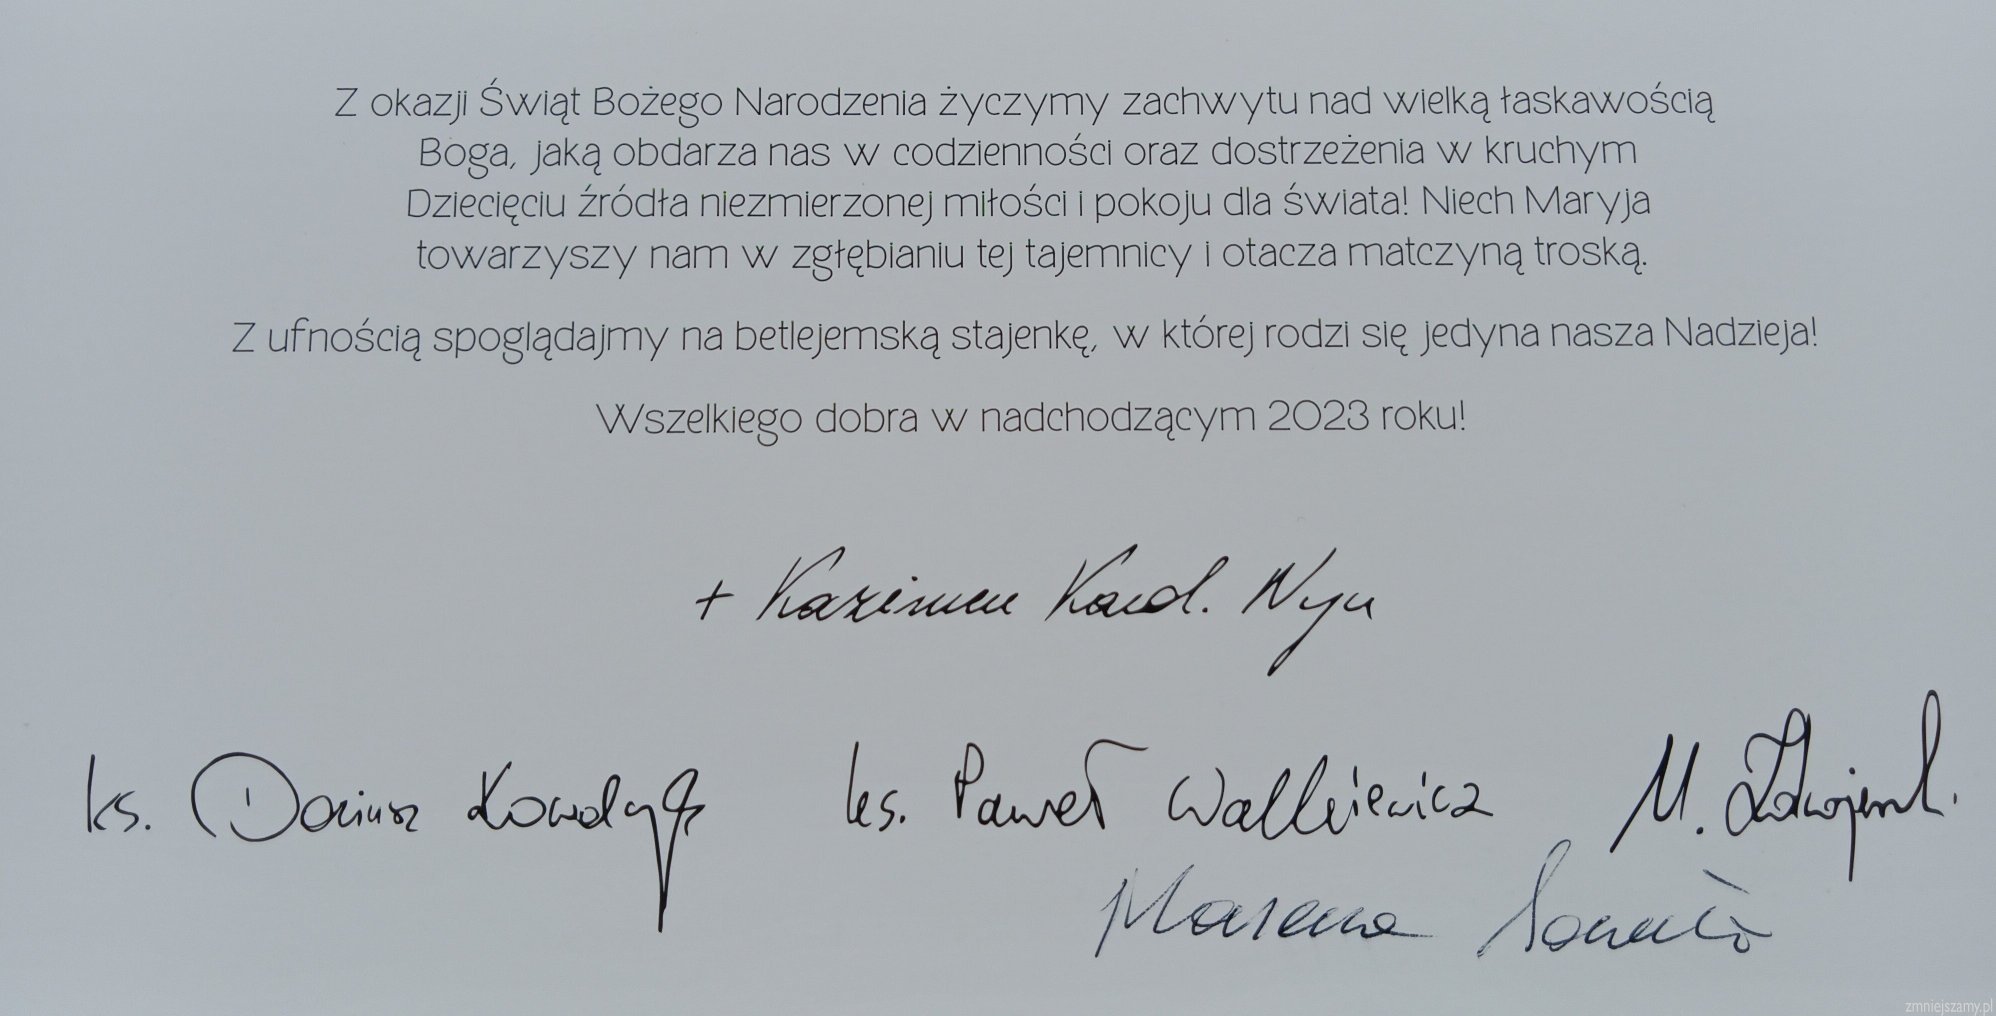 Z okazji Świąt Bożego Narodzenia życzymy zachwytu nad wielką łaskawością
Boga, jaką obdarza nas w codzienności oraz dostrzeżenia w kruchym
Dziecięciu źródła niezmierzonej miłości i pokoju dla świata! Niech Maryja
towarzyszy nam w zgłębianiu tej tajemnicy i otacza matczyną troską.
Z ufnością spoglądajmy na betlejemską stajenkę, w której rodzi się jedyna nasza Nadzieja!
Wszelkiego dobra w nadchodzącym 2023 roku!
+ Kazimierz Kard. Nycz
ks. Dariusz Kowalczyk ks. Paweł Walkiewicz M.
zmniejszamy.pl